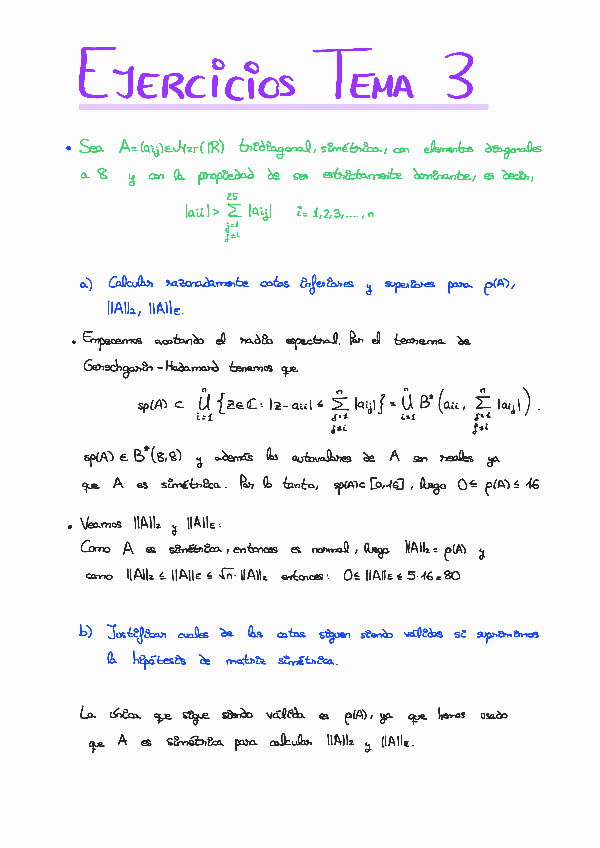 EJERCICIOS TEMA 3
• Sea A=(aij)∈M25(ℝ) tridiagonal, simétrica, con elementos diagonales
a 8 y con la propiedad de ser estrictamente dominante, es decir,
|aii| > ∑_{j=1, j≠i}^{25} |aij| i=1,2,3,....,n
a) Calcular razonadamente cotas inferiores y superiores para ρ(A),
||A||₂, ||A||E.
• Empecemos acotando el radio espectral. Por el teorema de
Gerschgorin-Hadamard tenemos que
sp(A) ⊂ ⋃_{i=1}^{n} {z∈ℂ: |z-aii| ≤ ∑_{j=1, j≠i}^{n} |aij|} = ⋃_{i=1}^{n} B*(aii, ∑_{j=1, j≠i}^{n} |aij|).
sp(A) ∈ B*(8,8) y además los autovalores de A son reales ya
que A es simétrica. Por lo tanto, sp(A)⊂[0,16], luego 0≤ρ(A)≤16
• Veamos ||A||₂ y ||A||E:
Como A es simétrica, entonces es normal, luego ||A||₂=ρ(A) y
como ||A||₂ ≤ ||A||E ≤ √n·||A||₂ entonces: 0≤||A||E≤5·16=80
b) Justificar cuales de las cotas siguen siendo válidas si suprimimos
la hipótesis de matriz simétrica.
La única que sigue siendo válida es ρ(A), ya que hemos usado
que A es simétrica para calcular ||A||₂ y ||A||E.